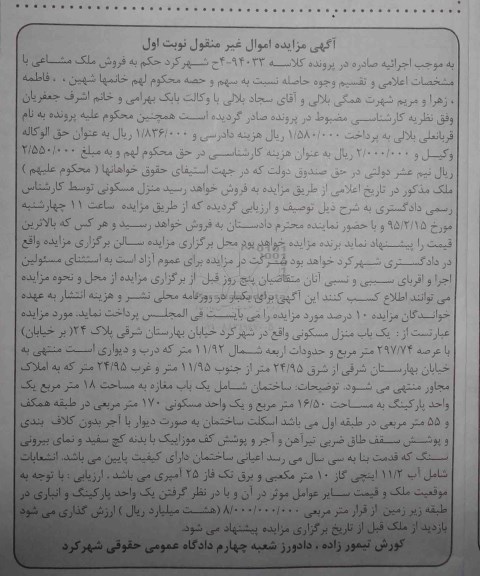 آگهی مزایده اموال غیر منقول نوبت اول
به موجب اجرائیه صادره در پرونده کلاسه ۹۴۰۳۳-۴ح شهرکرد حکم به فروش ملک مشاعی با
مشخصات اعلامی و تقسیم وجوه حاصله نسبت به سهم و حصه محکوم لهم خانمها شهین ، ، فاطمه
، زهرا و مریم شهرت همگی بلالی و آقای سجاد بلالی با وکالت بابک بهرامی و خانم اشرف جعفریان
وفق نظریه کارشناسی مضبوط در پرونده صادر گردیده است همچنین محکوم علیه پرونده به نام
قربانعلی بلالی به پرداخت ۱/۵۸۰/۰۰۰ ریال هزینه دادرسی و ۱/۸۳۶/۰۰۰ ریال به عنوان حق الوکاله
وکیل و ۲/۰۰۰/۰۰۰ ریال به عنوان هزینه کارشناسی در حق محکوم لهم و به مبلغ ۲/۵۵۰/۰۰۰
ریال نیم عشر دولتی در حق صندوق دولت که در جهت استیفای حقوق خواهانها ( محکوم علیهم )
ملک مذکور در تاریخ اعلامی از طریق مزایده به فروش خواهد رسید منزل مسکونی توسط کارشناس
رسمی دادگستری به شرح ذیل توصیف و ارزیابی گردیده که از طریق مزایده ساعت ۱۱ چهارشنبه
مورخ ۹۵/۲/۱۵ و با حضور نماینده محترم دادستان به فروش خواهد رسید و هر کس که بالاترین
قیمت را پیشنهاد نماید برنده مزایده خواهد بود محل برگزاری مزایده سالن برگزاری مزایده واقع
در دادگستری شهرکرد خواهد بود شرکت در مزایده برای عموم آزاد است به استثنای مسئولین
اجرا و اقربای سببی و نسبی آنان متقاضیان پنج روز قبل از برگزاری مزایده از محل و نحوه مزایده
می توانند اطلاع کسب کنند این آگهی برای یکبار در روزنامه محلی نشر و هزینه انتشار به عهده
خواندگان مزایده ۱۰ درصد مورد مزایده را می بایست فی المجلس پرداخت نماید. مورد مزایده
عبارتست از : یک باب منزل مسکونی واقع در شهرکرد خیابان بهارستان شرقی پلاک ۲۴( بر خیابان)
با عرصه ۲۹۷/۷۴ متر مربع و حدودات اربعه شمال ۱۱/۹۲ متر که درب و دیواری است منتهی به
خیابان بهارستان شرقی از شرق ۲۴/۹۵ متر از جنوب ۱۱/۹۵ متر و غرب ۲۴/۹۵ متر که به املاک
مجاور منتهی می شود. توضیحات: ساختمان شامل یک باب مغازه به مساحت ۱۸ متر مربع یک
واحد پارکینگ به مساحت ۱۶/۵۰ متر مربع و یک واحد مسکونی ۱۷۰ متر مربعی در طبقه همکف
و ۵۵ متر مربعی در طبقه اول می باشد اسکلت ساختمان به صورت دیوار با آجر بدون کلاف بندی
و پوشش سقف طاق ضربی تیرآهن و آجر و پوشش کف موزاییک با بدنه گچ سفید و نمای بیرونی
سنگ که قدمت بنا به سی سال می رسد اعیانی ساختمان دارای کیفیت پایین می باشد. انشعابات
شامل آب ۱۱/۲ اینچی گاز ۱۰ متر مکعبی و برق تک فاز ۲۵ آمپری می باشد . ارزیابی : با توجه به
موقعیت ملک و قیمت سایر عوامل موثر در آن و با در نظر گرفتن یک واحد پارکینگ و انباری در
طبقه زیر زمین از قرار متر مربعی ۸/۰۰۰/۰۰۰/۰۰۰ (هشت میلیارد ریال ) ارزش گذاری می شود
بازدید از ملک قبل از تاریخ برگزاری مزایده پیشنهاد می شود.
کورش تیمور زاده ، دادورز شعبه چهارم دادگاه عمومی حقوقی شهرکرد